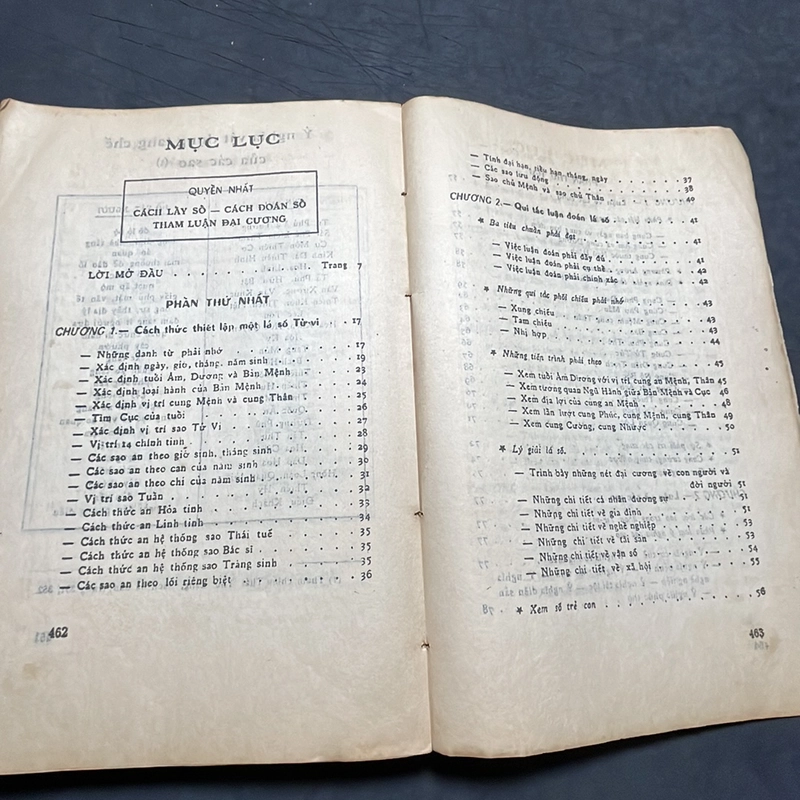 MỤC LỤC
QUYỀN NHẤT
CÁCH LẤY SỐ — CÁCH ĐOÁN SỐ
THAM LUẬN ĐẠI CƯƠNG
LỜI MỞ ĐẦU . . . . . . . . . . Trang 7
PHẦN THỨ NHẤT
CHƯƠNG 1.— Cách thức thiết lập một lá số Tử-vi . . 17
— Những danh từ phải nhớ . . . . . . . 17
— Xác định ngày, giờ, tháng, năm sinh . . . . 19
— Xác định tuổi Âm, Dương và Bản Mệnh . . . 23
— Xác định loại hành của Bản Mệnh . . . . 24
— Xác định vị trí cung Mệnh và cung Thân . . . 25
— Tìm Cục của tuổi . . . . . . . 26
— Xác định vị trí sao Tử Vi . . . . . . 27
— Vị trí 14 chính tinh . . . . . . . 28
— Các sao an theo giờ sinh, tháng sinh . . . . 29
— Các sao an theo can của năm sinh . . . . 30
— Các sao an theo chi của năm sinh . . . . 31
— Vị trí sao Tuần . . . . . . . 32
— Cách thức an Hỏa tinh . . . . . . 33
— Cách thức an Linh tinh . . . . . . 34
— Cách thức an hệ thống sao Thái tuế . . . . 35
— Cách thức an hệ thống sao Bác sĩ . . . . 35
— Cách thức an hệ thống sao Tràng sinh . . . 35
— Các sao an theo lối riêng biệt . . . . . 36
462
— Tính đại hạn, tiểu hạn, tháng, ngày . . . . . 37
— Các sao lưu động . . . . . . . 38
— Sao chủ Mệnh và sao chủ Thân . . . . . 40
CHƯƠNG 2.— Qui tắc luận đoán lá số . . . . . . 41
★ Ba tiêu chuẩn phải đạt . . . . . . . 41
— Việc luận đoán phải đầy đủ . . . . . . 41
— Việc luận đoán phải cụ thể . . . . . . 42
— Việc luận đoán phải chính xác . . . . . 42
★ Những qui tắc phối chiếu phải nhớ . . . . . 43
— Xung chiếu . . . . . . . . 43
— Tam chiếu . . . . . . . . 43
— Nhị hợp . . . . . . . . 44
★ Những tiến trình phải theo . . . . . . 45
— Xem tuổi Âm Dương với vị trí cung an Mệnh, Thân 45
— Xem tương quan Ngũ Hành giữa Bản Mệnh và Cục . 46
— Xem địa lợi của cung an Mệnh . . . . . 48
— Xem lần lượt cung Phúc, cung Mệnh, cung Thân 49
— Xem cung Cường, cung Nhược . . . . . 50
★ Lý giải lá số . . . . . . . . 51
— Trình bày những nét đại cương về con người và
đời người . 51
— Những chi tiết cá nhân đương sự . . . . 51
— Những chi tiết về gia đình . . . . . . 51
— Những chi tiết về nghề nghiệp . . . . . 53
— Những chi tiết về tài sản . . . . . . 53
— Những chi tiết về vận số . . . . . . 54
— Những chi tiết về xã hội . . . . . . 55
★ Xem số trẻ con . . . . . . . . 56
463